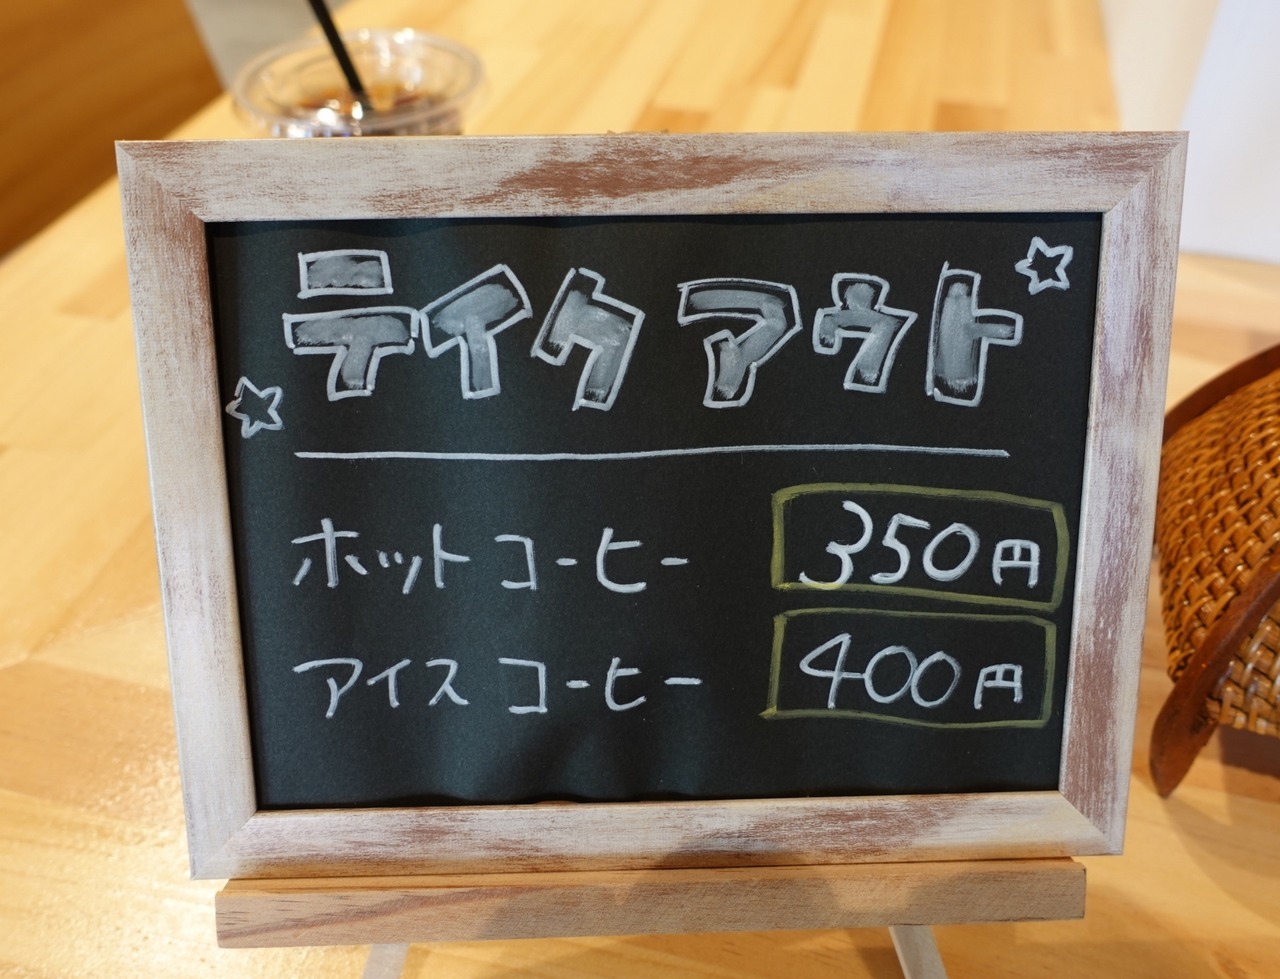 テイクアウト
ホットコーヒー 350円
アイスコーヒー 400円